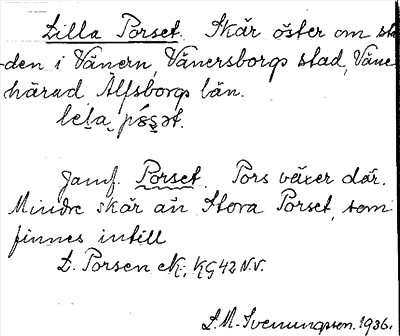 Lilla Porset. Skär öster om sta
den i Vänern, Vänersborgs stad, Väne
härad Älfsborgs län.
Jämf. Porset. Pors växer där.
Mindre skär än Stora Porset, som
finnes intill
L. Porsen ek; KG 42 N.V.
L.M. Svenungsson. 1936.